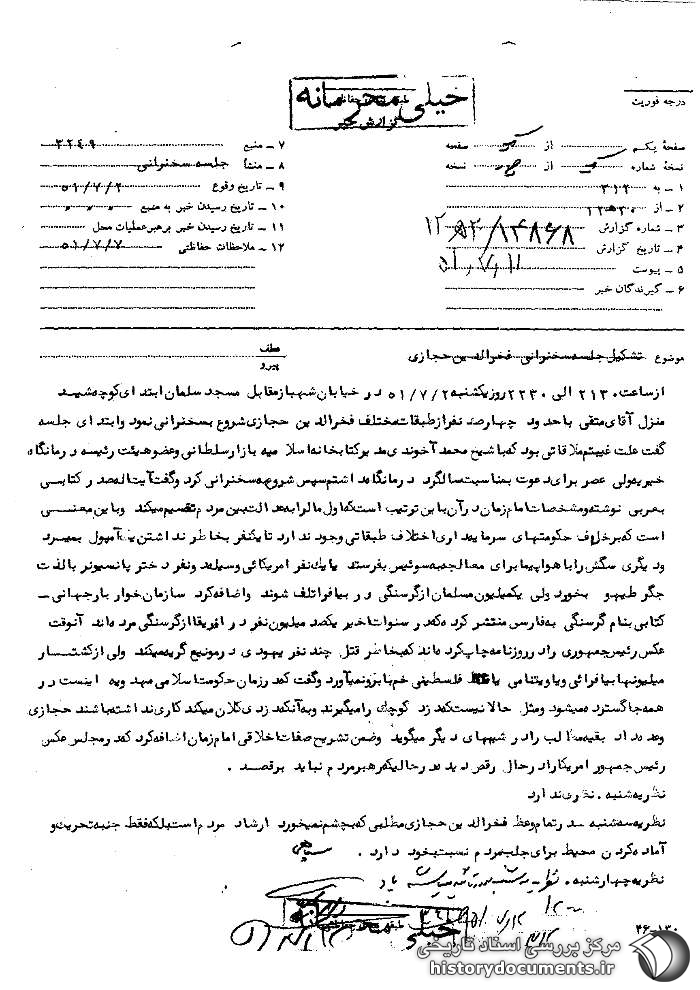 خیلی محرمانه
گزارش خبر
درجه فوریت
صفحهٔ یکم از صفحه
نسخهٔ شماره از نسخه
۱ - به ۳۱۲
۲ - از
۳ - شماره گزارش
۴ - تاریخ گزارش
۵ - پیوست
۶ - گیرندگان خبر
۷ - منبع ۲۲۴۹
۸ - منشأ جلسه سخنرانی
۹ - تاریخ وقوع ۵۱/۷/۲
۱۰ - تاریخ رسیدن خبر به منبع
۱۱ - تاریخ رسیدن خبر برهبر عملیات محل
۱۲ - ملاحظات حفاظتی ۵۱/۷/۷
موضوع تشکیل جلسه سخنرانی فخرالدین حجازی
عطف
پیرو
از ساعت ۲۱۳۰ الی ۲۲۳۰ روز یکشنبه ۵۱/۷/۲ در خیابان شهباز مقابل مسجد سلمان ابتدای کوچه شید
منزل آقای متقی با حدود چهارصد نفر از طبقات مختلف فخرالدین حجازی شروع بسخنرانی نمود و ابتدای جلسه
گفت علت غیبتم ملاقاتی بود که با شیخ محمد آخوندی مدیر کتابخانه اسلامیه بازار سلطانی و عضو هیئت رئیسه درمانگاه
خیریه ولی عصر برای دعوت بمناسبت سالگرد درمانگاه داشتم سپس شروع به سخنرانی کرد و گفت آیت اله صدر کتابی
بعربی نوشته و مشخصات امام زمان در آن باین ترتیب است که اول مال را بعدالت بین مردم تقسیم میکند و باین معنی
است که برخلاف حکومتهای سرمایه داری اختلاف طبقاتی وجود ندارد تا یکنفر بخاطر نداشتن یک آمپول بمیرد
و دیگری سگش را با هواپیما برای معالجه به سوئیس بفرستد یا یک نفر امریکائی وسیله دو نفر دختر پانسیونر بالذت
جگر طیهو بخورد ولی یک میلیون مسلمان از گرسنگی در بیافرا تلف شوند واضافه کرد سازمان خواربار جهانی -
کتابی بنام گرسنگی به فارسی منتشر کرده که در سنوات اخیر یکصد میلیون نفر در افریقا از گرسنگی مرده اند آنوقت
عکس رئیس جمهوری را در روزنامه چاپ کرده اند که بخاطر قتل چند نفر یهودی در مونیخ گریه میکند ولی از کشتار
میلیونها بیافرائی و یا ویتنامی یا فلسطینی خم بابرو نمیآورد و گفت که در زمان حکومت اسلامی مهدویه اینست در
همه جا گسترده میشود و مثل حالا نیست که دزد کوچک را میگیرند و به آنکه دزدی کلان میکند کاری نداشته باشند حجازی
وعده داد بقیه مطالب را در شبهای دیگر میگوید وضمن تشریح صفات اخلاقی امام زمان اضافه کرد که در مجلس عکس
رئیس جمهور امریکا را در حال رقص دیدند در حالیکه رهبر مردم نباید برقصد .
نظریه شنبه . نظری ندارد
نظریه سه شنبه در تمام وعظ فخرالدین حجازی مطلبی که بچشم نمیخورد ارشاد مردم است بلکه فقط جنبه تحریک و
آماده کردن محیط برای جلب مردم نسبت بخود دارد .
نظریه چهارشنبه .
خیلی محرمانه
۳۶-۱۳۰
مرکز بررسی اسناد تاریخی
historydocuments.ir